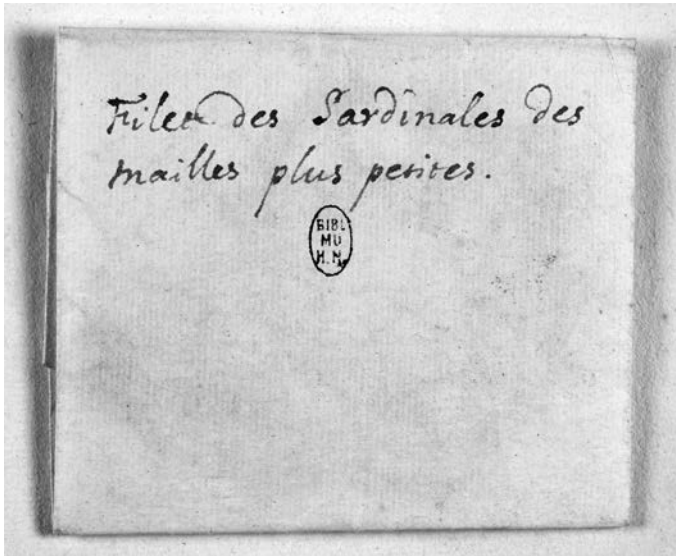 Filet des Sardinales des
mailles plus petites.
BIBL
MU
H.N.